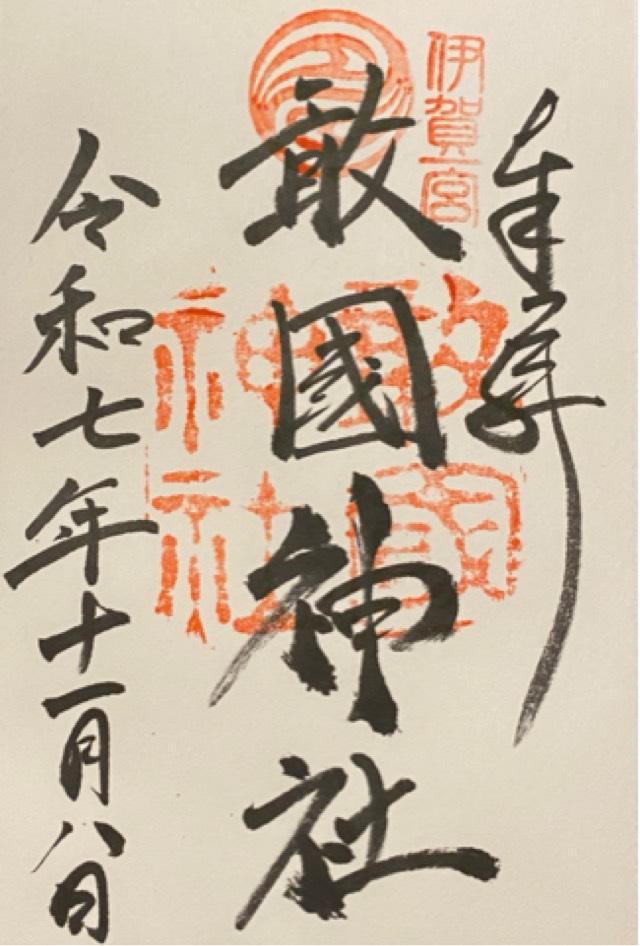 奉拝
伊賀一宮
敢國神社
敢國神社
令和七年十一月八日